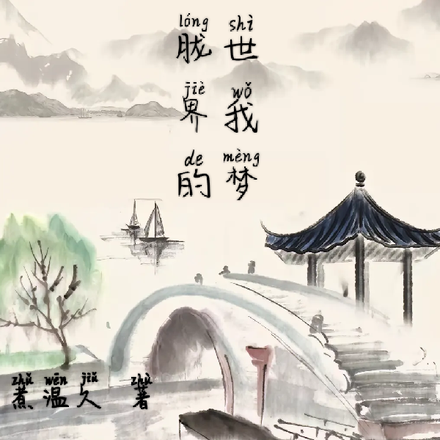 lóng shì
胧世
jiè wǒ
界我
de mèng
的梦
zhǔ wēn jiǔ zhù
煮温久 著